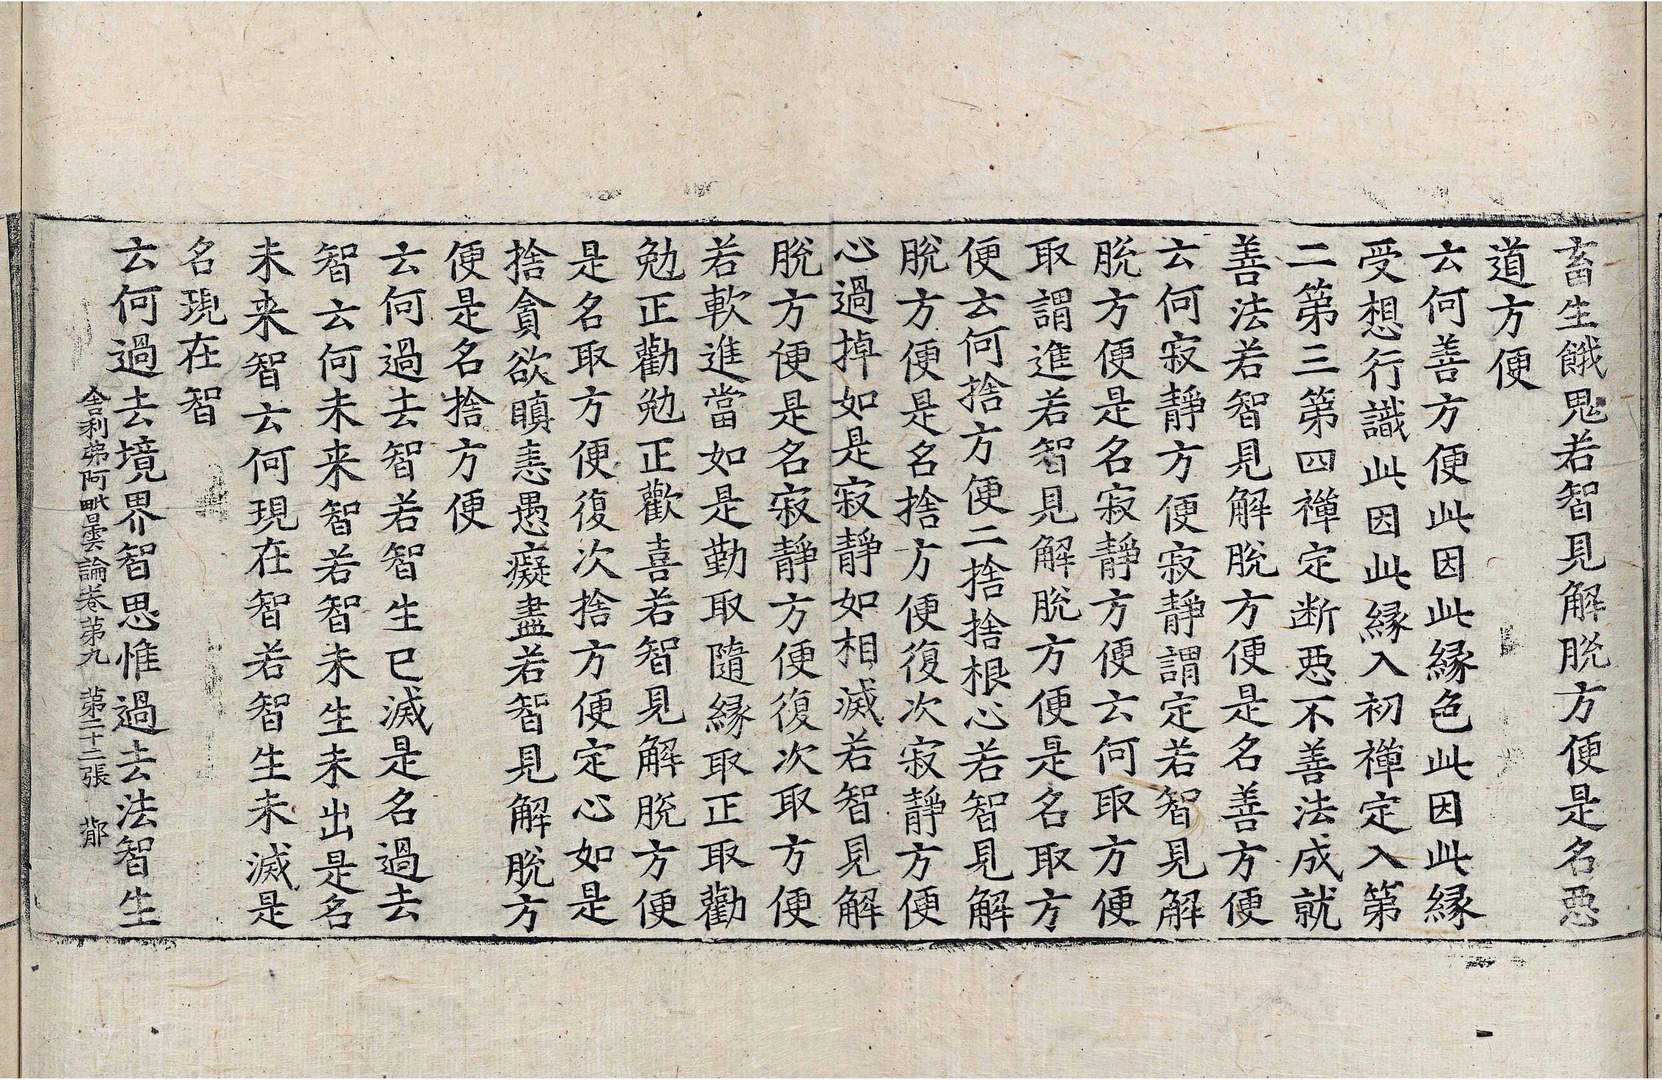 畜生餓鬼若智見解脫方便是名惡
道方便
云何善方便此因此縁色此因此縁
受想行識此因此縁入初禪定入第
二第三第四禪定断惡不善法成就
善法若智見解脫方便是名善方便
云何寂靜方便寂靜謂定若智見解
脫方便是名寂靜方便云何取方便
取謂進若智見解脫方便是名取方
便云何捨方便二捨捨根心若智見解
脫方便是名捨方便復次寂靜方便
心過掉如是寂靜如相滅若智見解
脫方便是名寂靜方便復次取方便
若軟進當如是勤取隨縁取正取勸
勉正勸勉正歡喜若智見解脫方便
是名取方便復次捨方便定心如是
捨貪欲瞋恚愚癡盡若智見解脫方
便是名捨方便
云何過去智若智生已滅是名過去
智云何未来智若智未生未出是名
未来智云何現在智若智生未滅是
名現在智
云何過去境界智思惟過去法智生
舍利弗阿毗曇論卷第九 第二十二張 鄣